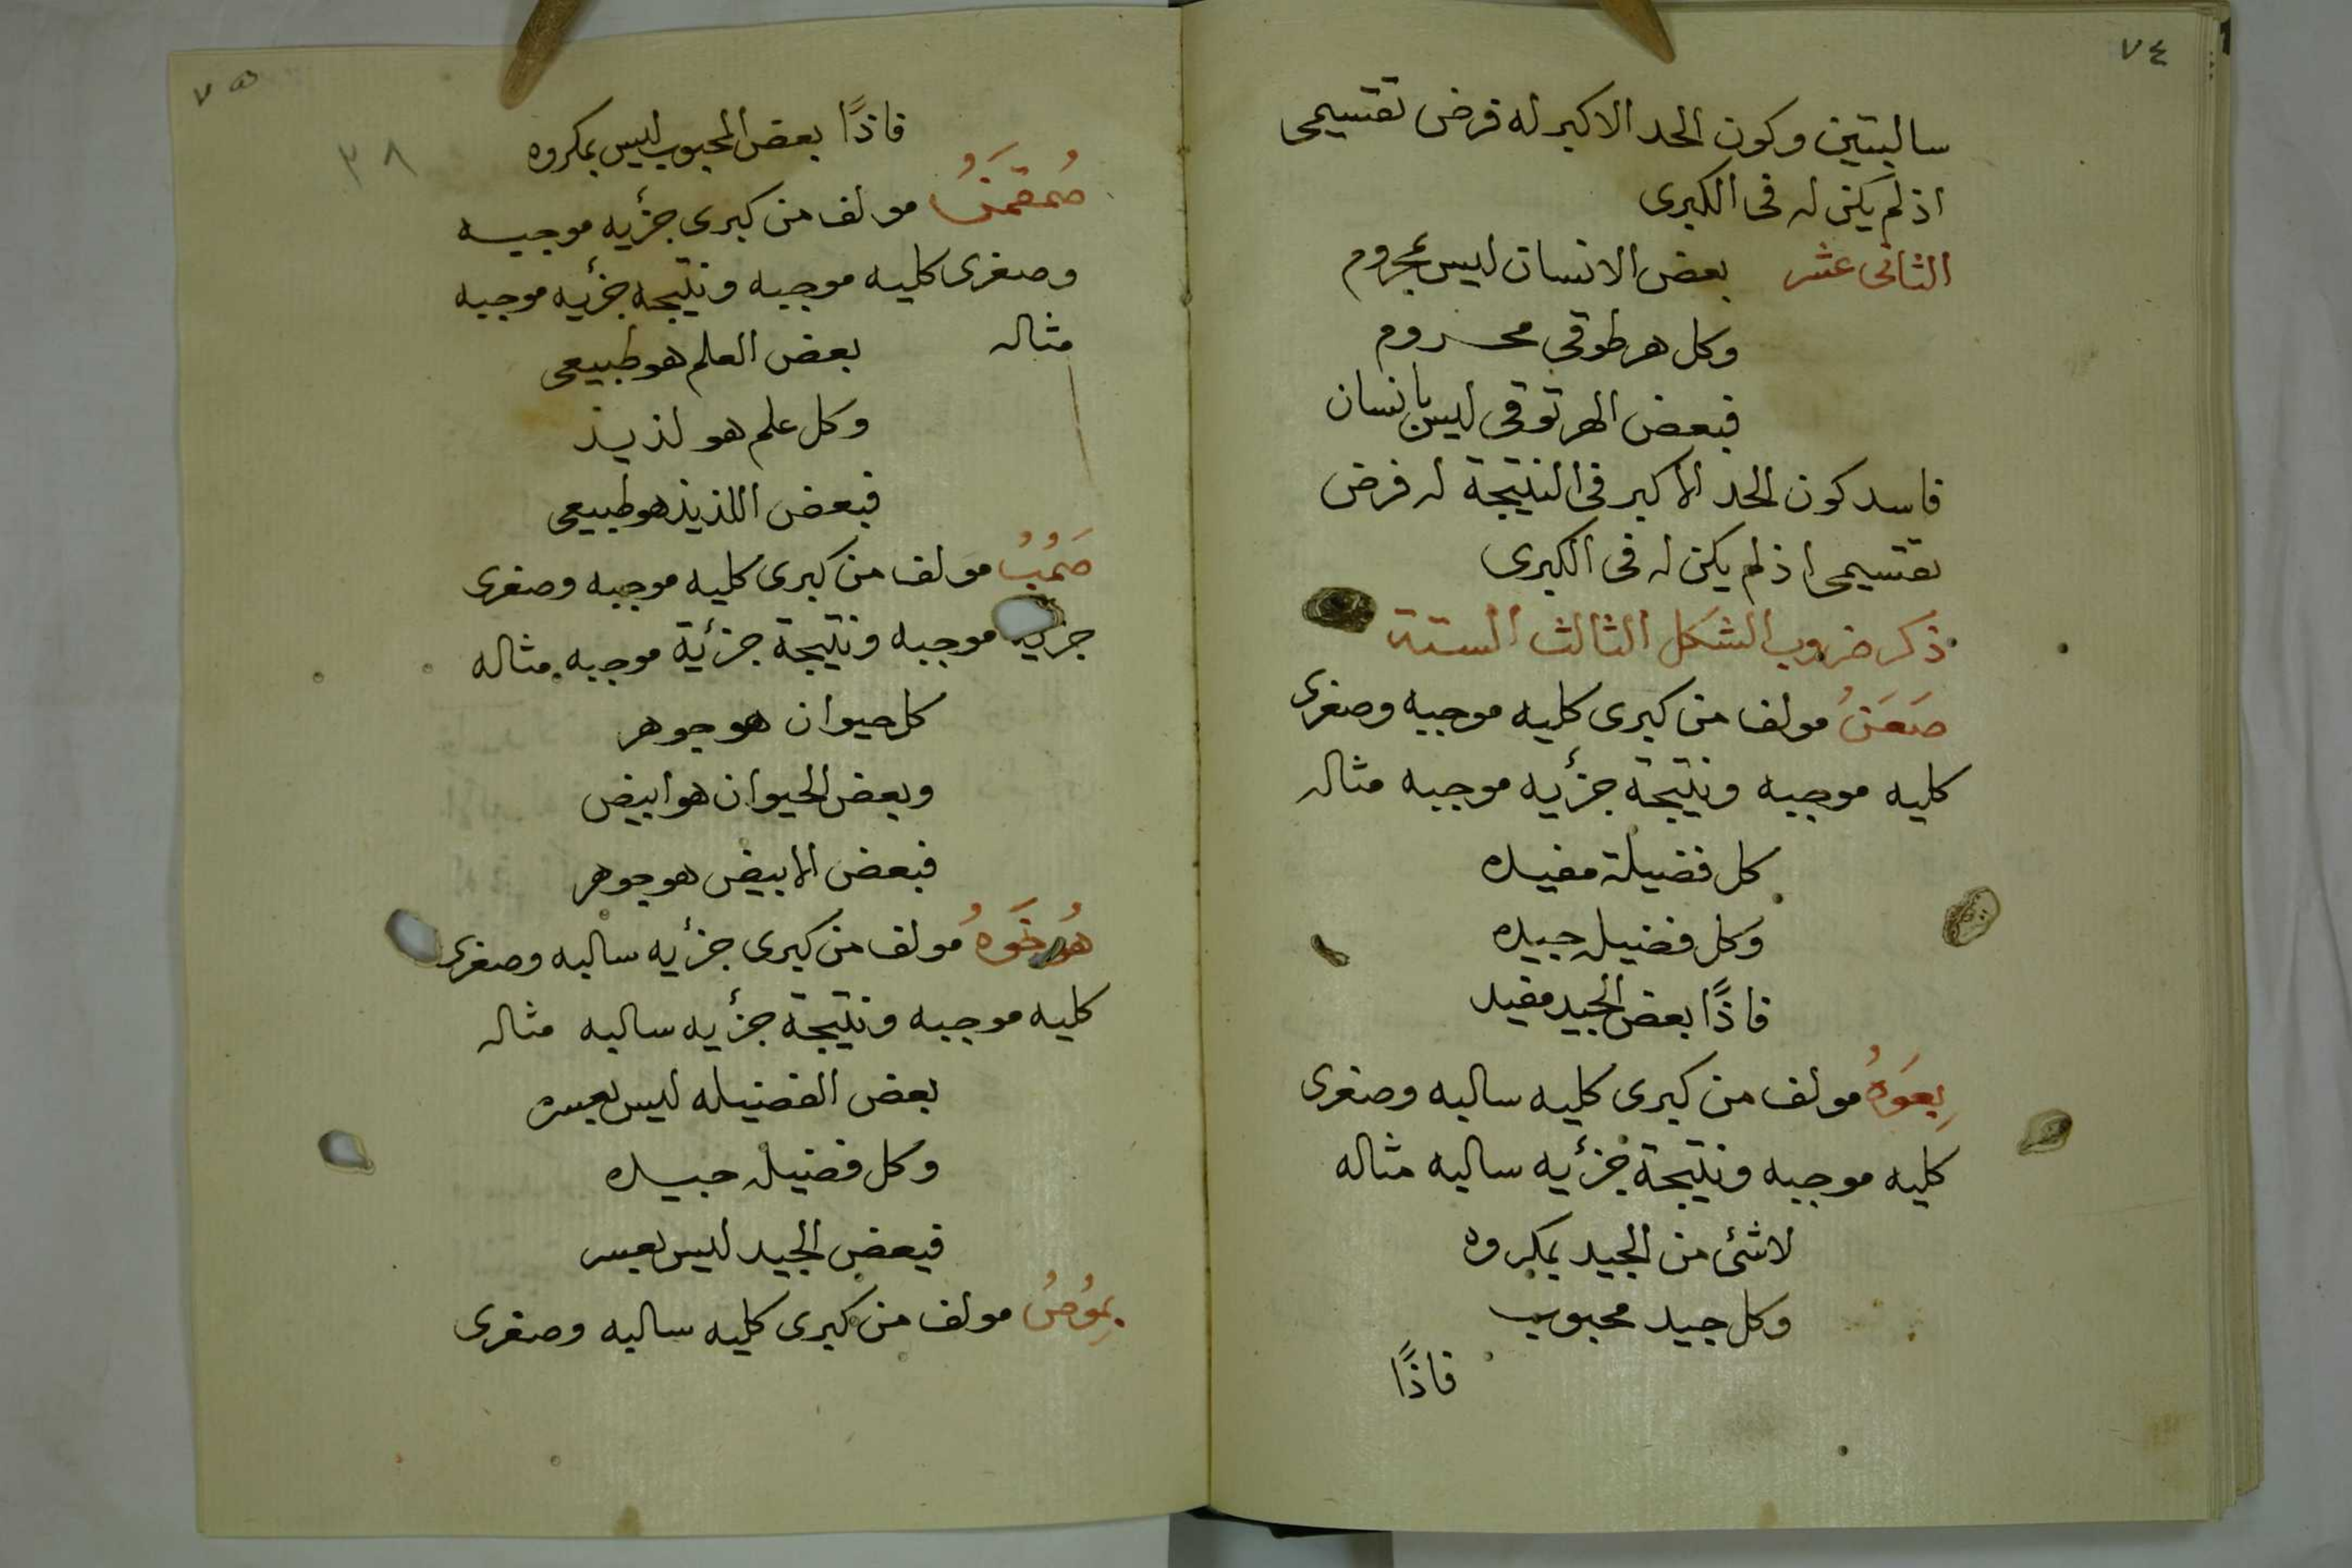 ٧٤
سالبتين وكون الحد الاكبر له فرض تقسيمى
اذ لم يكن له فى الكبرى
الثانى عشر بعض الانسان ليس بمجروم
وكل هرطوقى محروم
فبعض الهرتوقى ليس بانسان
فاسد كون الحد الاكبر فى النتيجة له فرض
تقسيمى اذ لم يكن له فى الكبرى
ذكر ضروب الشكل الثالث الستة
صَعَنُ مولف من كبرى كليه موجبه وصغرى
كليه موجبه ونتيجة جزٔيه موجبه مثاله
كل فضيلة مفيده
وكل فضيله جيده
فاذًا بعض الجيد مفيد
بِعَوَهُ مولف من كبرى كليه سالبه وصغرى
كليه موجبه ونتيجة جزٔيه سالبه مثاله
لا شئ من الجيد بمكروه
وكل جيد محبوب
فاذًا
٧٥
٣٨
فاذًا بعض المحبوب ليس بمكروه
مولف من كبرى جزٔيه موجبه
وصغرى كليه موجبه ونتيجه جزٔيه موجبه
مثاله بعض العلم هو طبيعى
وكل علم هو لذيذ
فبعض اللذيذ هو طبيعى
مولف من كبرى كليه موجبه وصغرى
جزيه موجبه ونتيجة جزٔية موجبه مثاله
كل حيوان هو جوهر
وبعض الحيوان هو ابيض
فبعض الابيض هو جوهر
مولف من كبرى جزٔيه سالبه وصغرى
كليه موجبه ونتيجة جزٔيه سالبه مثاله
بعض الفضيله ليس بعسره
وكل فضيله جيده
فبعض الجيد ليس بعسر
مولف من كبرى كليه سالبه وصغرى